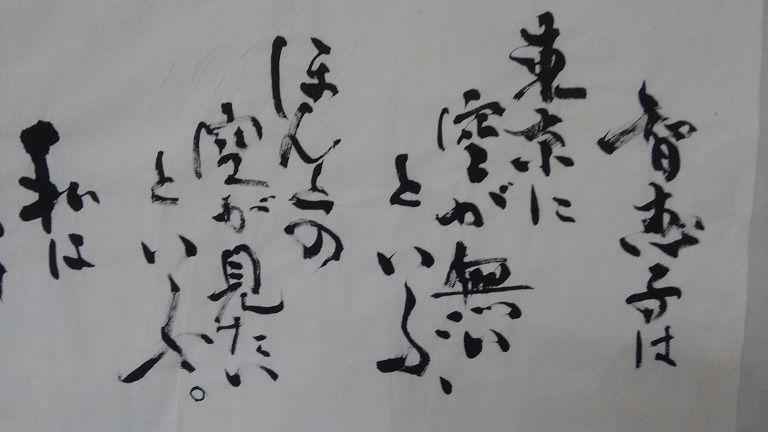 智恵子は
東京に
空が無い
といふ、
ほんとの
空が見たい
といふ。
私は